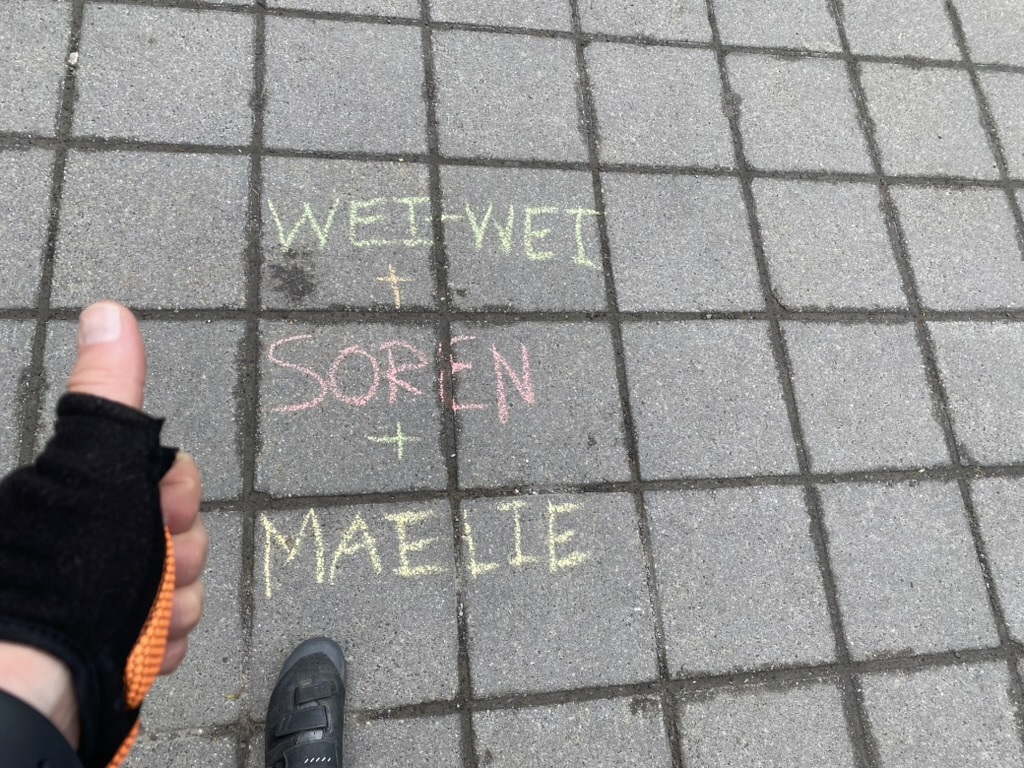 WEI-WEI
+
SOREN
+
MAELIE